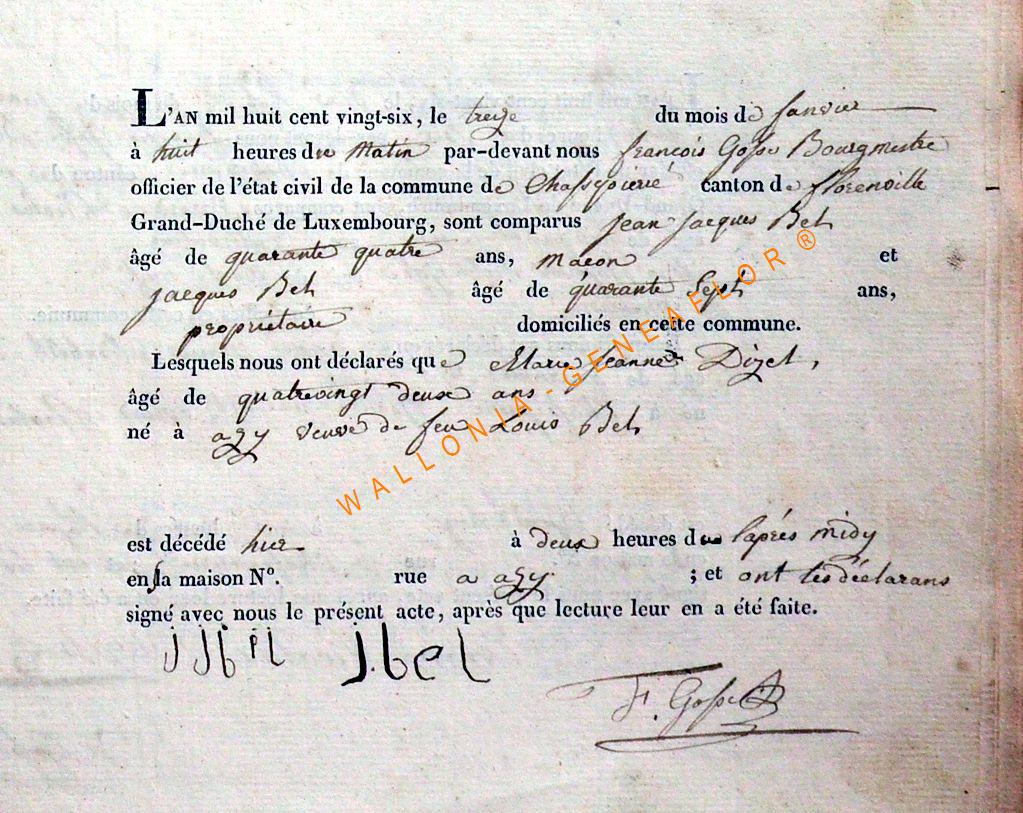 L'AN mil huit cent vingt-six, le treize du mois de Janvier
à huit heures du Matin par-devant nous françois Gosse Bourgmestre
officier de l'état civil de la commune de Chassepierre canton de florenville
Grand-Duché de Luxembourg, sont comparus Jean Jacques Bel
âgé de quarante quatre ans, macon et
jacques Bel âgé de quarante Sept ans,
propriétaire domiciliés en cette commune.
Lesquels nous ont déclarés que Marie Jeanne Dizel,
âgé de quatrevingt deux ans
né à azy veuve de feu Louis Bel
WALLONIA-GENEAFLOR®
est décédé hier à deux heures de l'après midy
en sa maison Nº. rue a azy ; et ont les déclarans
signé avec nous le présent acte, après que lecture leur en a été faite.
j j bel j. bel
F. Gosse